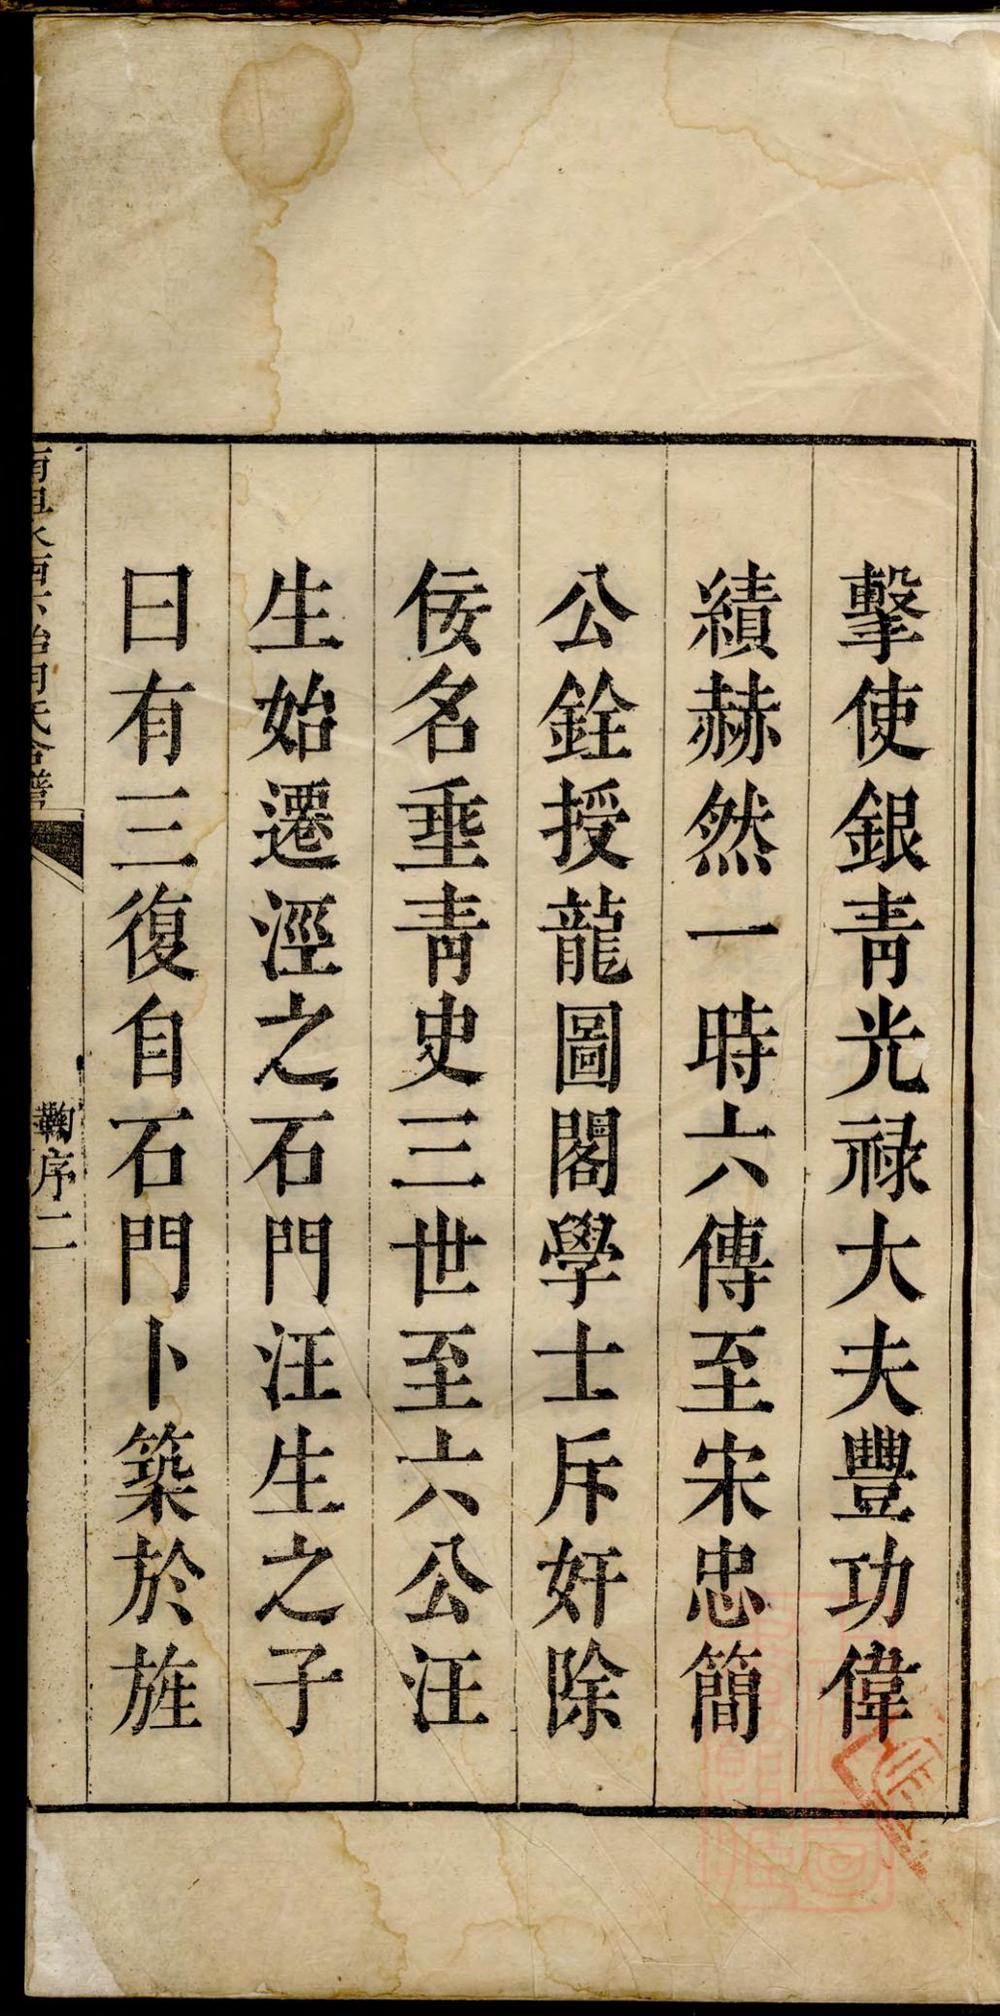 擊使銀青光祿大夫豐功偉
績赫然一時六傳至宋忠簡
公銓授龍圖閣學士斥奸除
佞名垂青史三世至六公汪
生始遷涇之石門汪生之子
曰有三復自石門卜築於旌
鞠序二